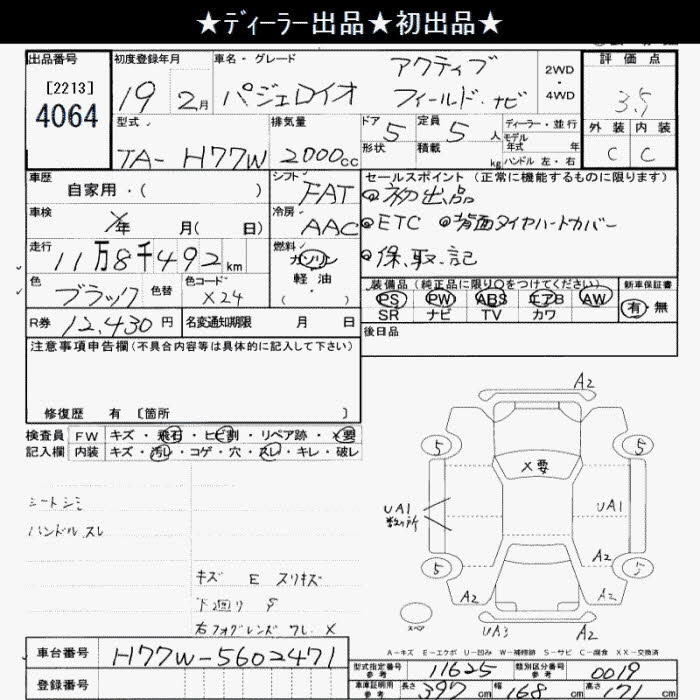 ★ディーラー出品★初出品★
出品番号 初度登録年月 車名・グレード 評価点
[2213] 4064
19 2月 パジェロイオ アクティブ フィールド・ナビ 2WD・4WD 3.5
型式 排気量 ドア 5 定員 5人 ディーラー・並行 外装 内装
TA-H77W 2000cc 形状 積載 kg モデル年式 年 ハンドル 左・右 C C
車歴 シフト FAT セールスポイント(正常に機能するものに限ります)
自家用・( ) ◎初出品
車検 年 月( 日) 冷房 AAC ◎ETC ◎背面タイヤハードカバー
走行 11万8千492km 燃料 ガソリン 軽油 ( ) ◎保.取.記
色 ブラック 色替 色コード X24
装備品(純正品に限り○をつけてください) 新車保証書
PS PW ABS エアB AW 有・無
SR ナビ TV カワ
R券 12,430円 名変通知期限 月 日 後日品
注意事項申告欄(不具合内容等は具体的に記入して下さい)
修復歴 有 [箇所 ]
検査員 FW キズ・飛石・ヒビ割・リペア跡・X要
記入欄 内装 キズ・汚レ・コゲ・穴・スレ・キレ・破レ
シートシミ
ハンドルスレ
キズ E スリキズ
下回り S
右フォグレンズ ワレ.X
A2
5 5
X要
UA1 数ヶ所 UA1
A2
5 5
A2 A2
スペア UA3 A2
A-キズ E-エクボ U-凹み W-補修跡 S-サビ C-腐食 XX-交換済
車台番号 H77W-5602471
型式指定番号 参考 11625 類別区分番号 参考 0019
登録番号 車庫証明用 参考 長さ 397cm 幅 168cm 高さ 171cm